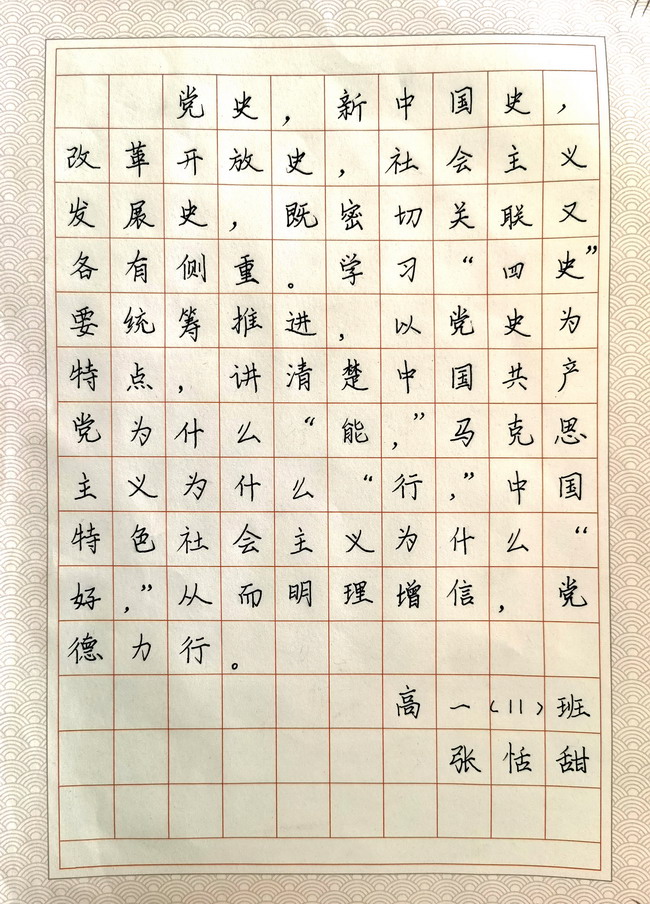 党史，新中国史，
改革开放史，社会主义
发展史，既密切关联又
各有侧重。学习“四史”
要统筹推进，以党史为
特点，讲清楚中国共产
党为什么“能，”马克思
主义为什么“行，”中国
特色社会主义为什么“
好，”从而明理增信，党
德力行。
高一（11）班
张恬甜